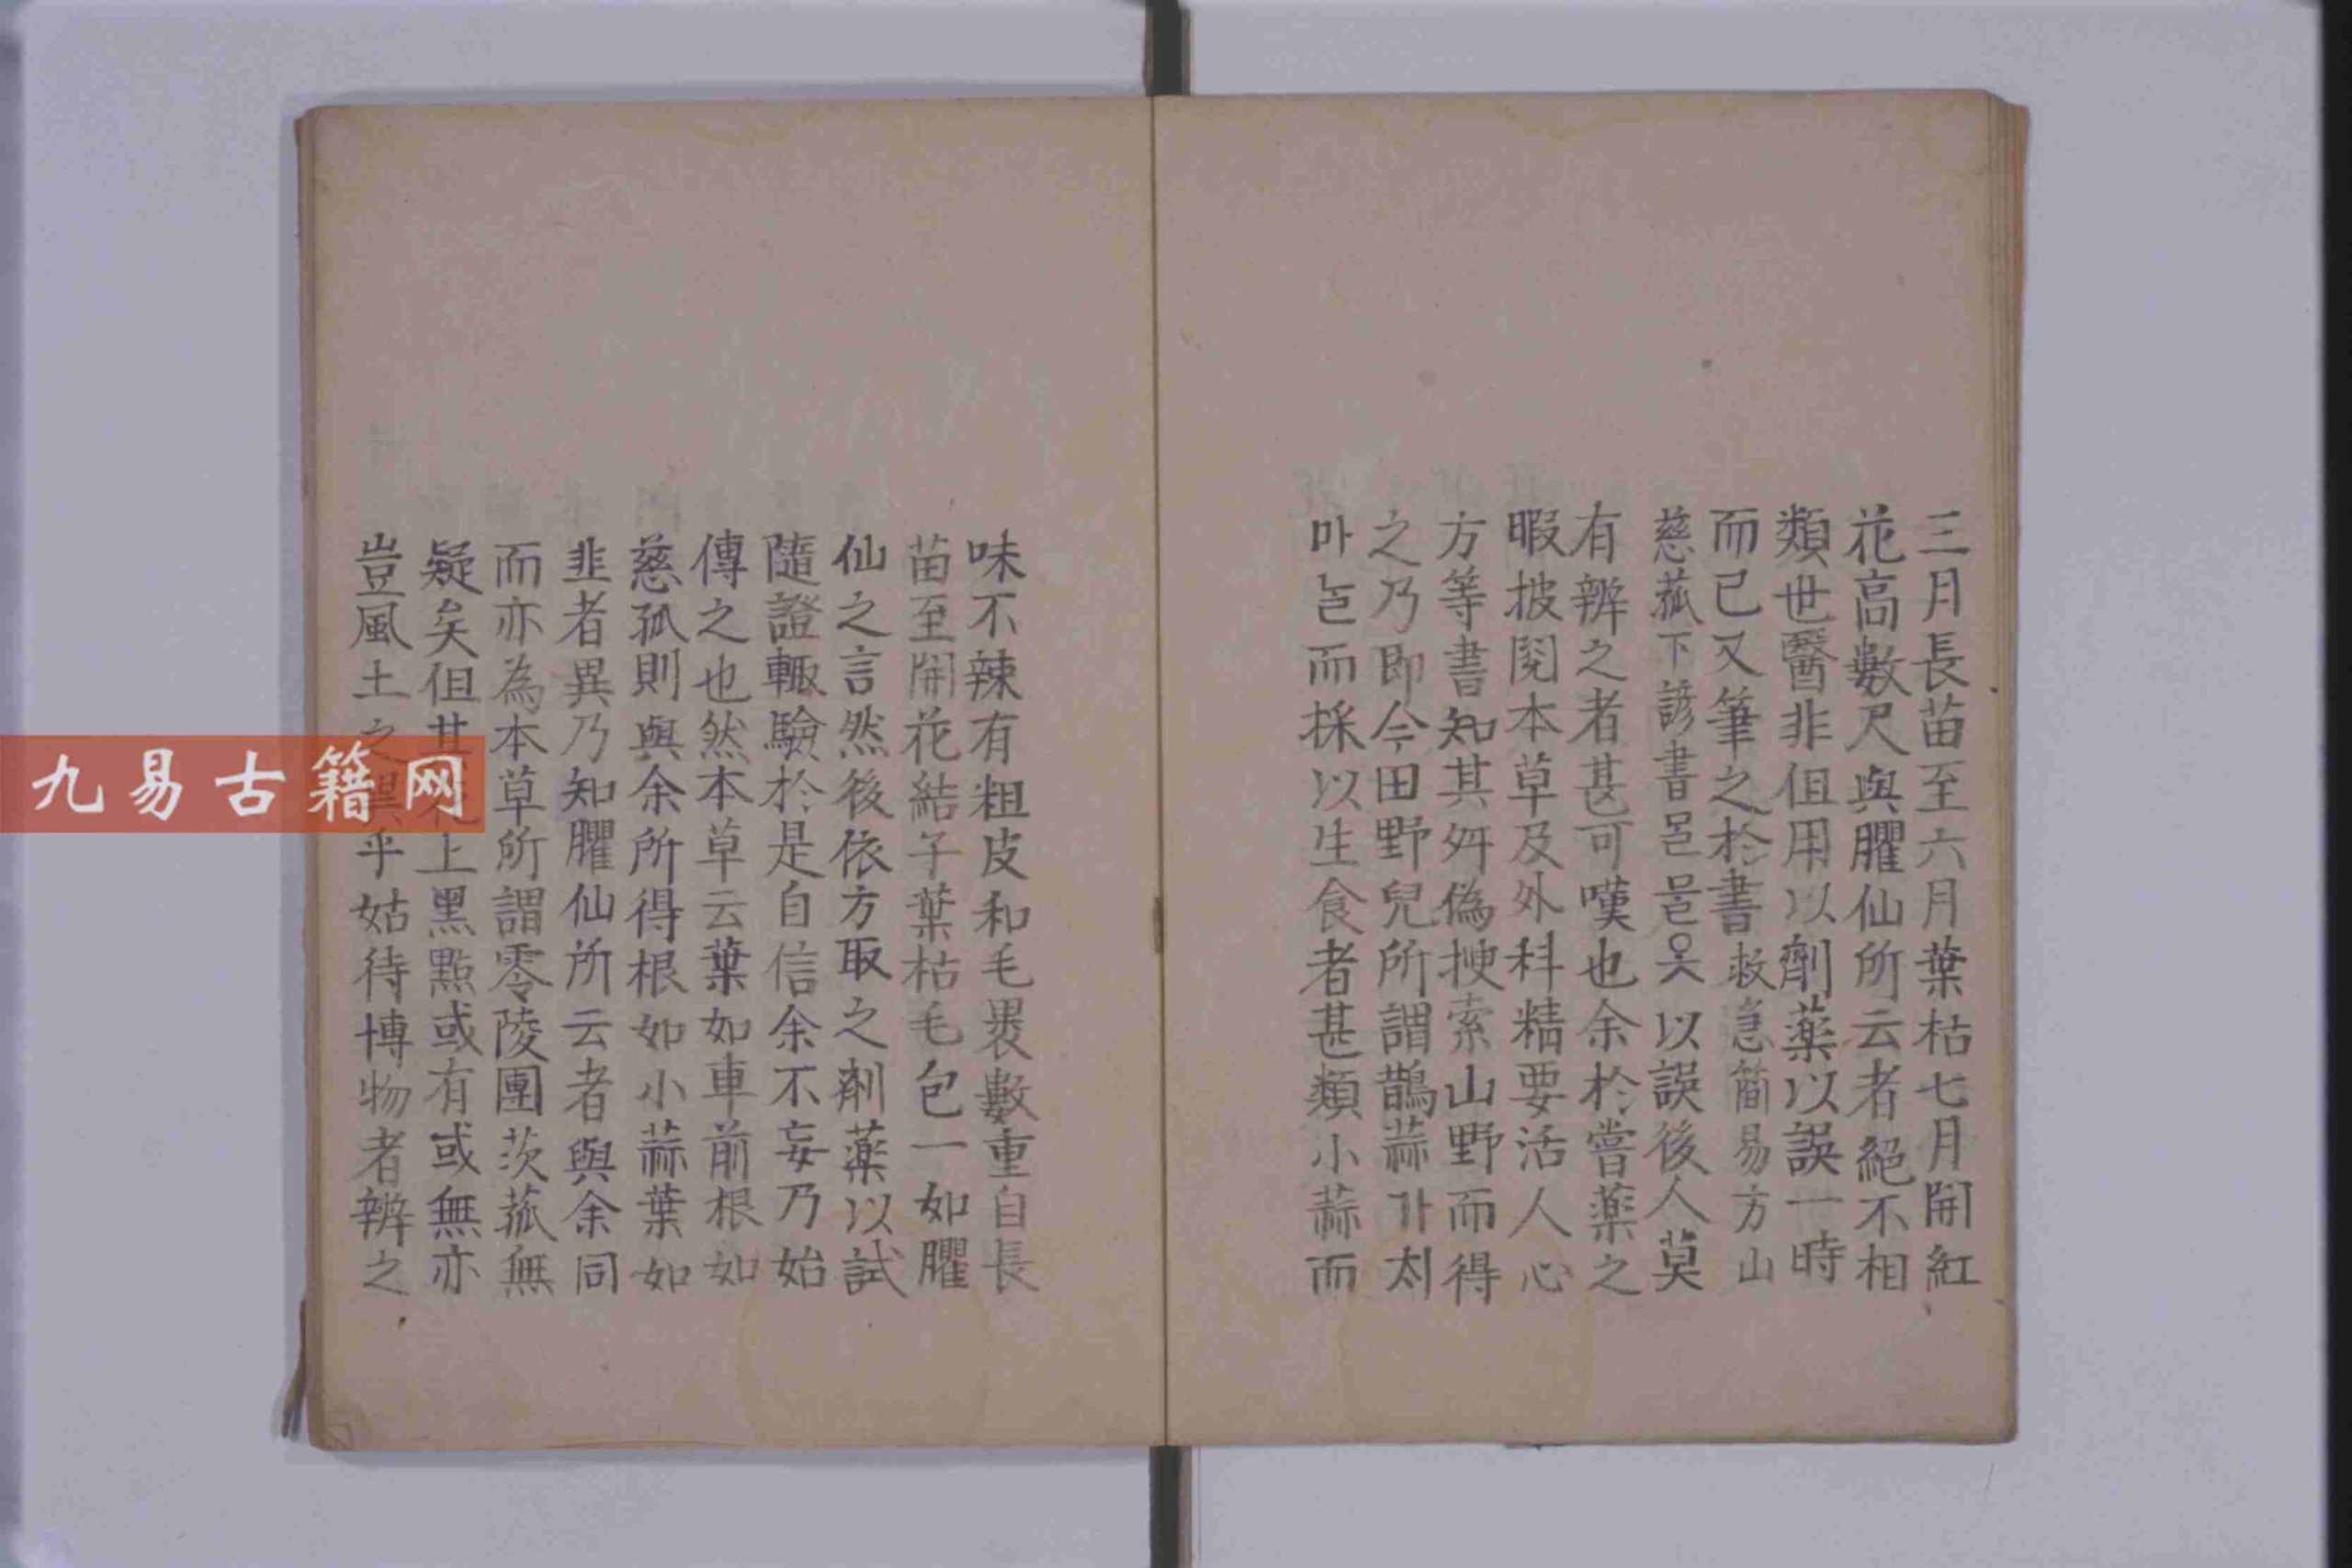 三月長苗至六月葉枯七月開紅
花高數尺與臞仙所云者絕不相
類世醫非但用以劑藥以誤一時
而已又筆之於書救急簡易方山
慈菰下諺書믈옷以誤後人莫
有辨之者甚可嘆也余於嘗藥之
暇披閱本草及外科精要活人心
方等書知其舛偽搜索山野而得
之乃即今田野兒所謂鵲蒜가
마늘而採以生食者甚類小蒜而
味不辣有粗皮和毛褁數重自長
苗至開花結子葉枯毛包一如臞
仙之言然後依方取之劑藥以試
隨證輙驗於是自信余不妄乃始
傳之也然本草云葉如車前根如
慈孤則與余所得根如小蒜葉如
韭者異乃知臞仙所云者與余同
而亦為本草所謂零陵團茨菰無
疑矣但其上黑點或有或無亦
豈風土之異乎姑待博物者辨之
九易古籍网